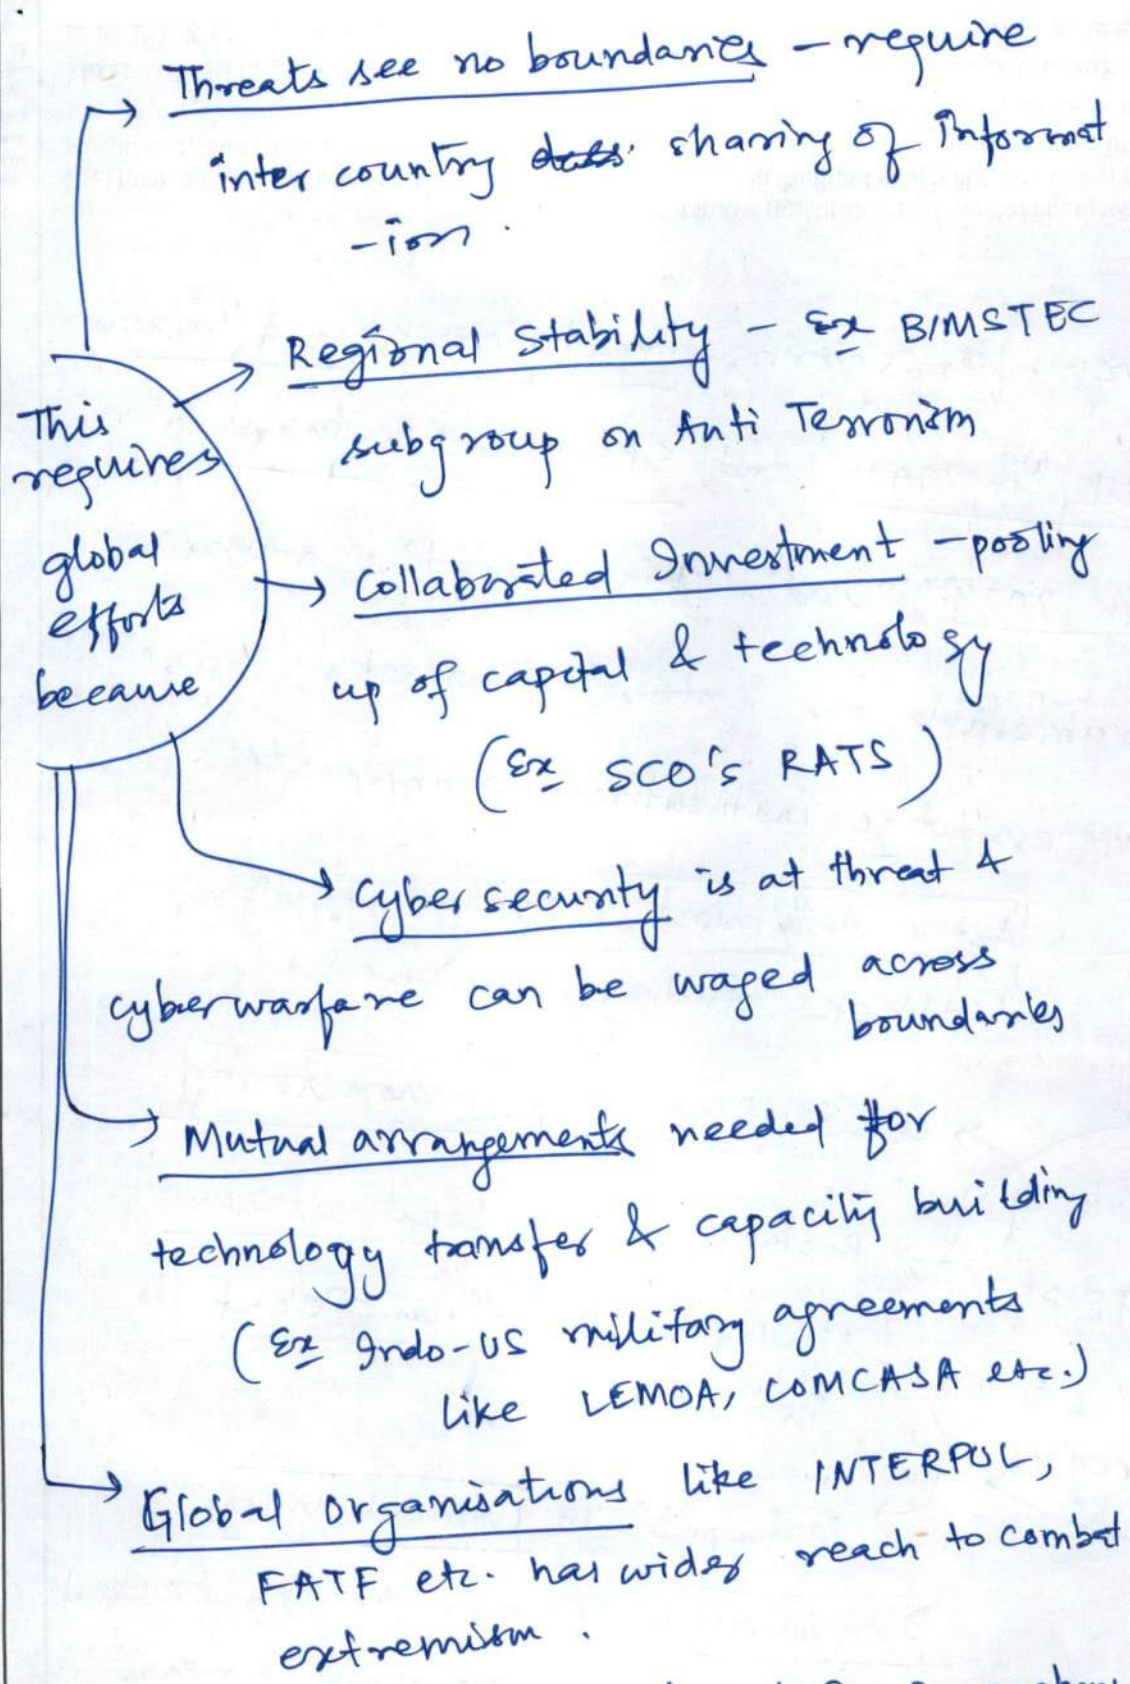 Threats see no boundaries - require
inter country sharing of informat
-ion.
This
requires
global
efforts
because
Regional Stability - Ex BIMSTEC
subgroup on Anti Terrorism
Collaborated Investment - pooling
up of capital & technology
(Ex SCO's RATS)
Cyber security is at threat &
cyber warfare can be waged across
boundaries
Mutual arrangements needed for
technology transfer & capacity building
(Ex Indo-US military agreements
like LEMOA, COMCASA etc.)
Global Organisations like INTERPOL,
FATF etc. has wider reach to combat
extremism.